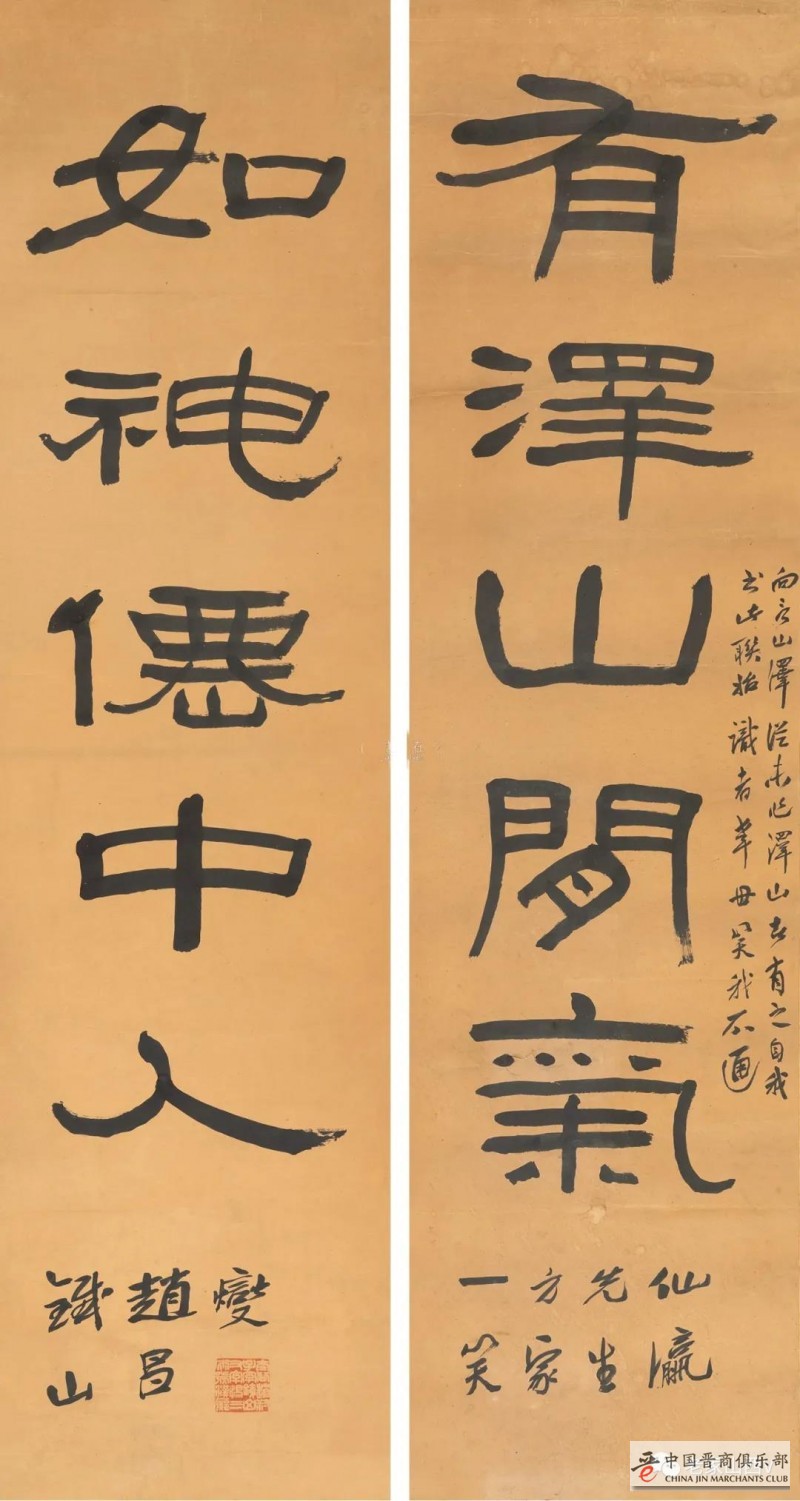 有澤山間氣
向言山澤從未作澤山者有之自我
書此聯始識者幸毋笑我不通
仙瀛
先生
方家
一笑
如神僊中人
鐵山
趙昌
燮
中国晋商俱乐部
CHINA JIN MARCHANTS CLUB